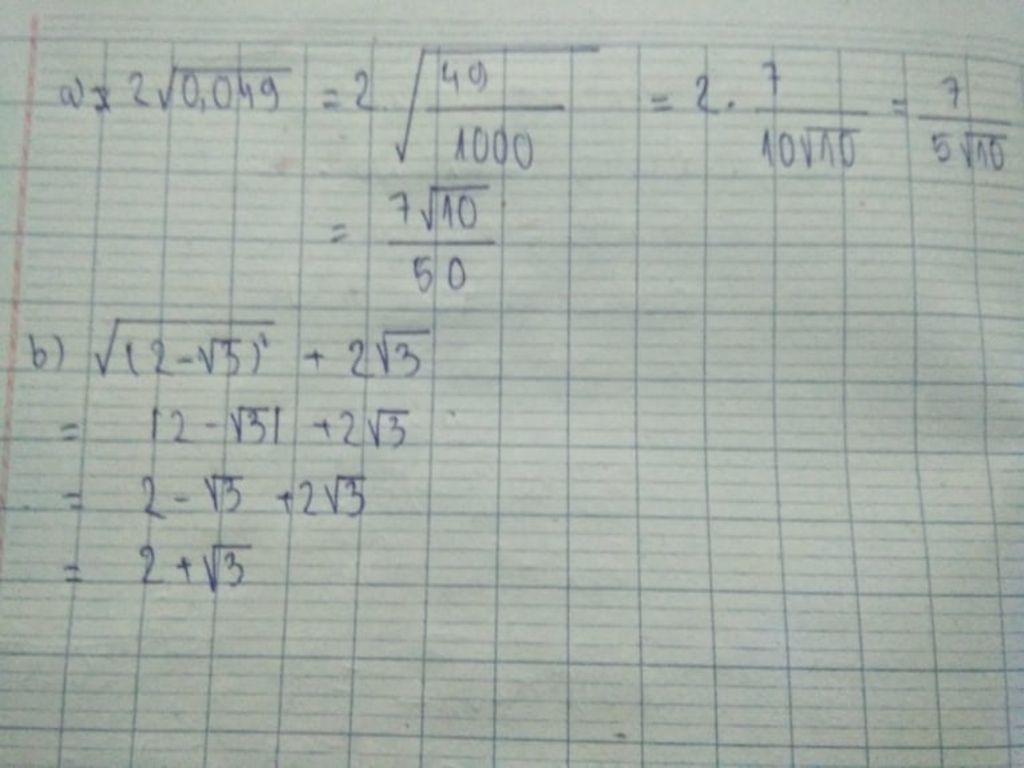 a) 2√0,049 = 2.√(49/1000) = 2.7/(10√10) = 7/(5√10)
= 7√10/50
b) √(2-√3)² + 2√3
= |2-√3| +2√3
= 2-√3 +2√3
= 2+√3